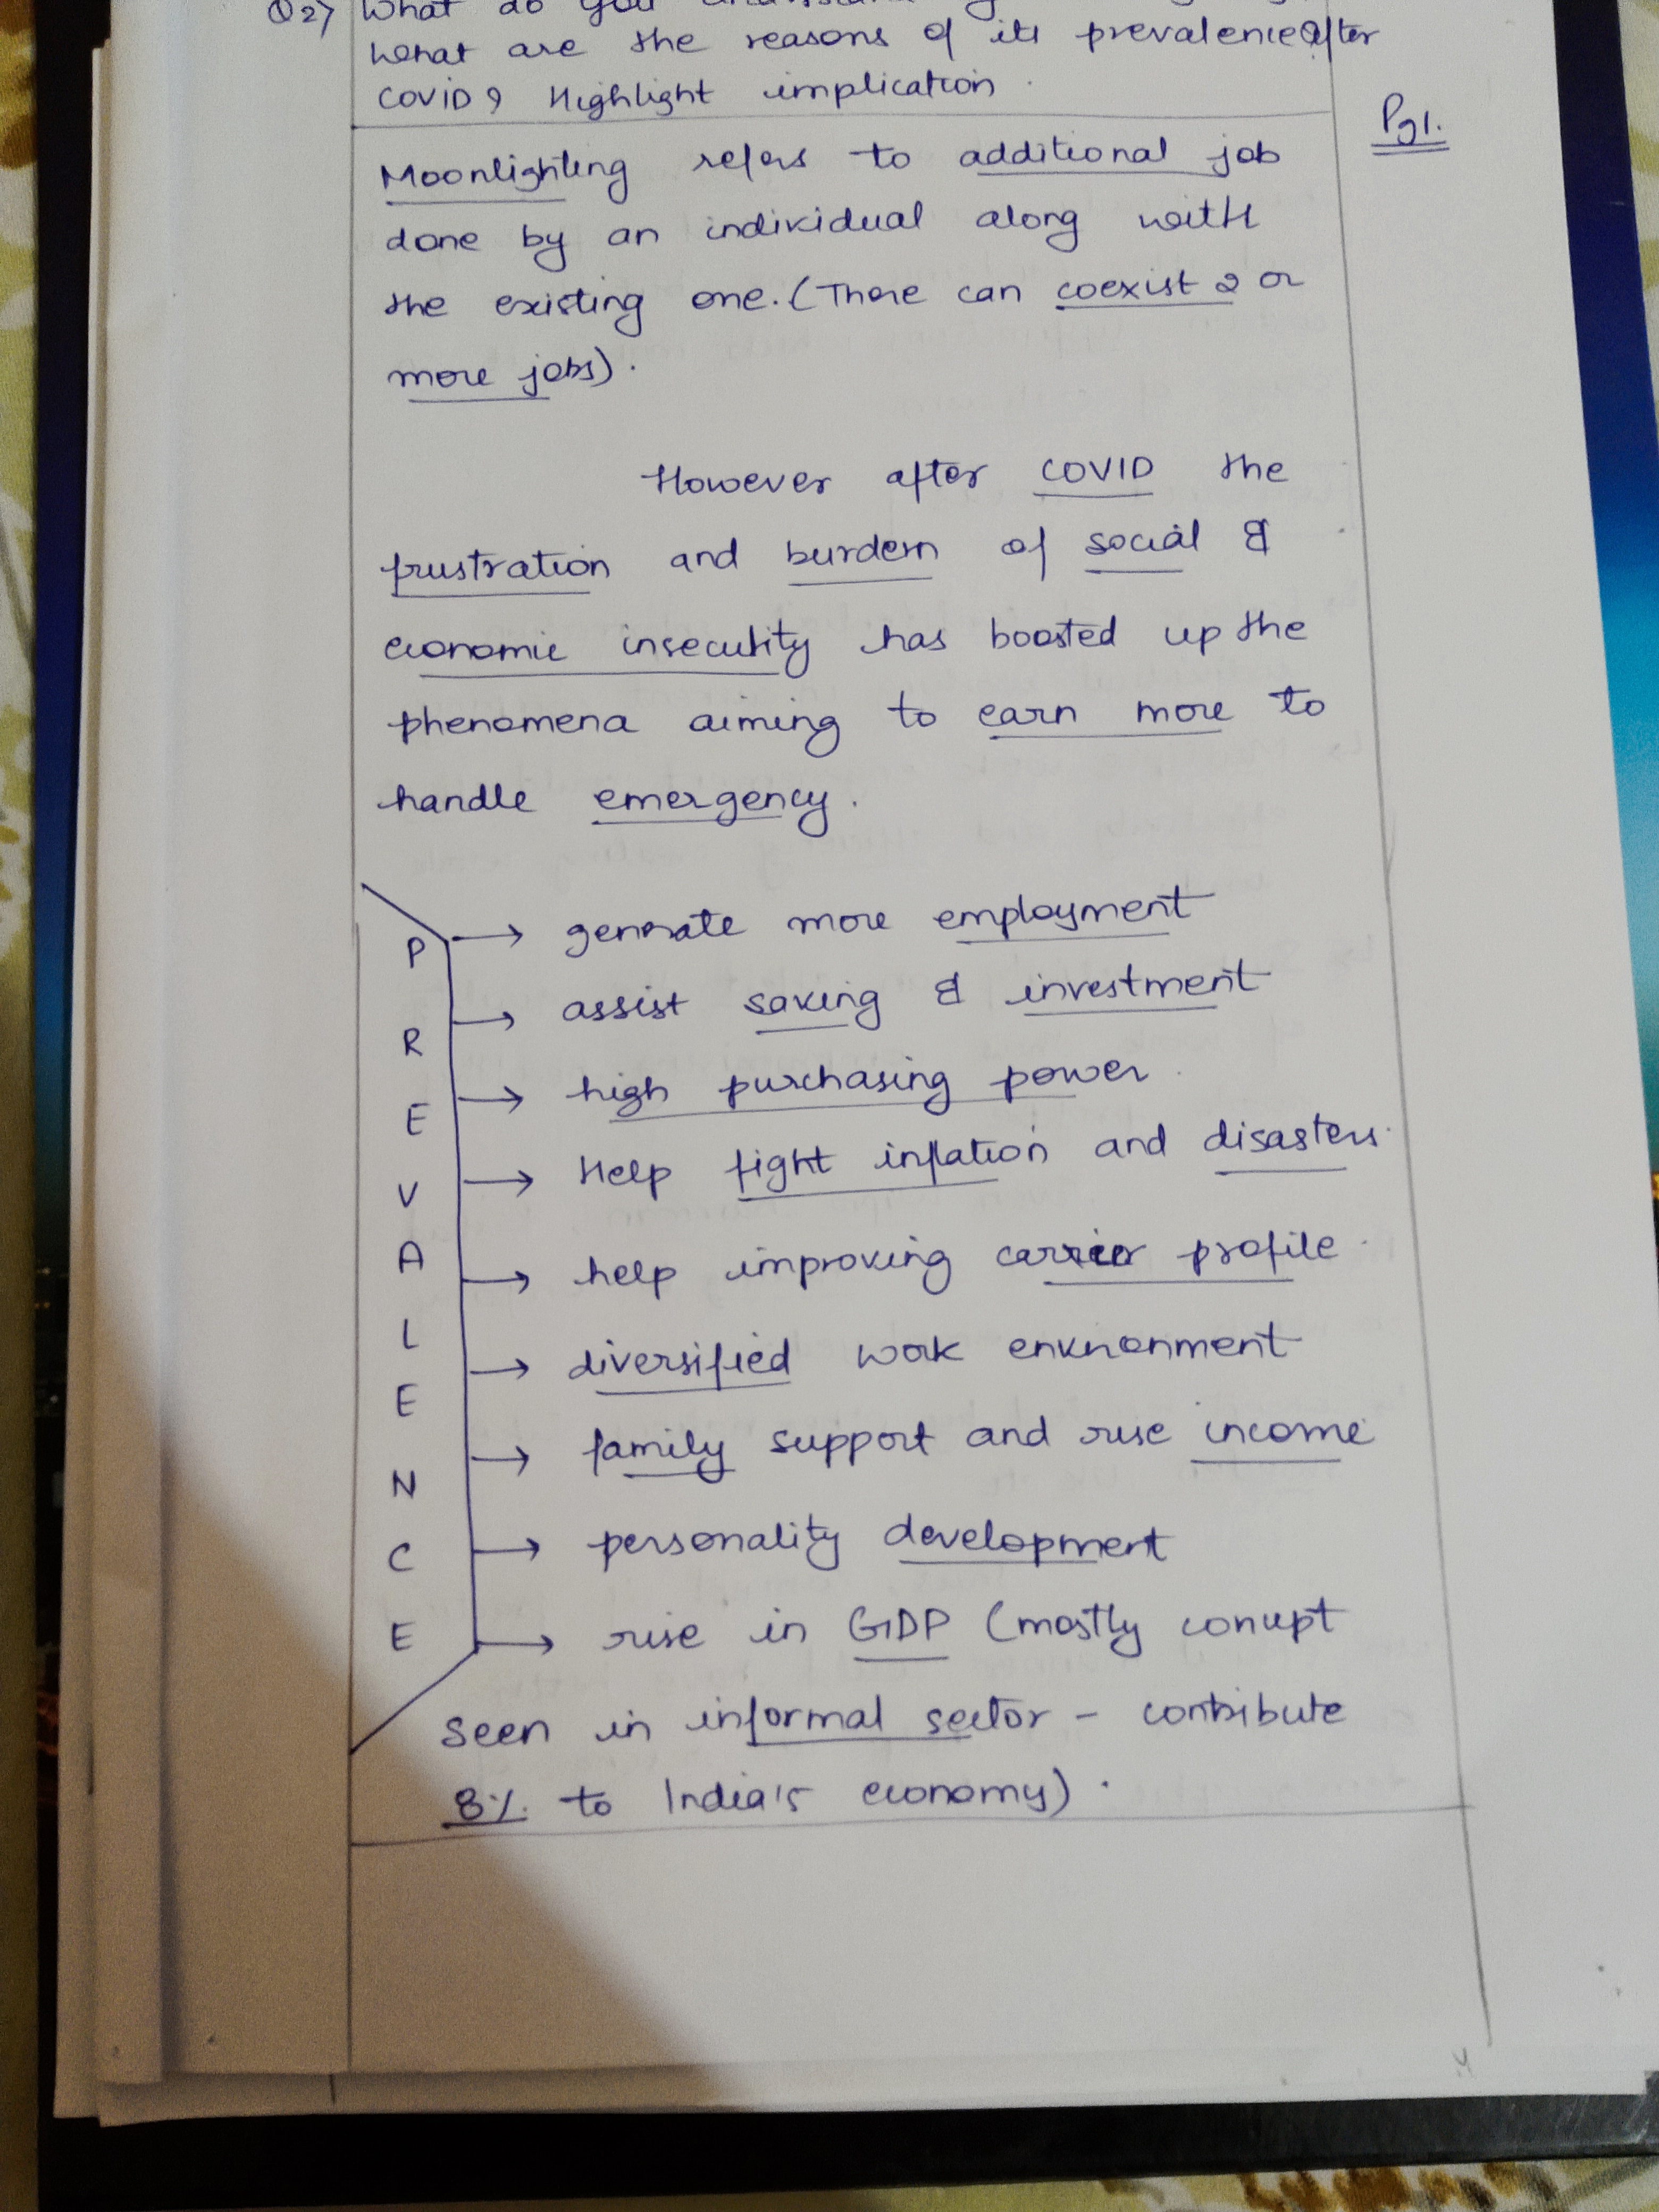 Q2) What do you
what are the reasons of its prevalence after
COVID? Highlight implication.
Pg 1.
Moonlighting refers to additional job
done by an individual along with
the existing one. (There can coexist 2 or
more jobs).
However after COVID the
frustration and burdern of social &
economic insecurity has boosted up the
phenomena aiming to earn more to
handle emergency.
PREVALENCE
→ generate more employment
→ assist saving & investment
→ high purchasing power
→ Help fight inflation and disasters.
→ help improving carrier profile.
→ diversified work environment
→ family support and rise income
→ personality development
→ rise in GDP (mostly corrupt
seen in informal sector - contribute
8% to India's economy).